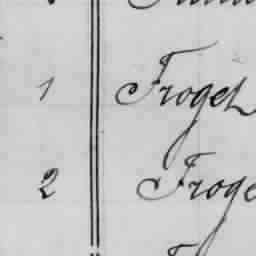 1 Froget
2 Froge